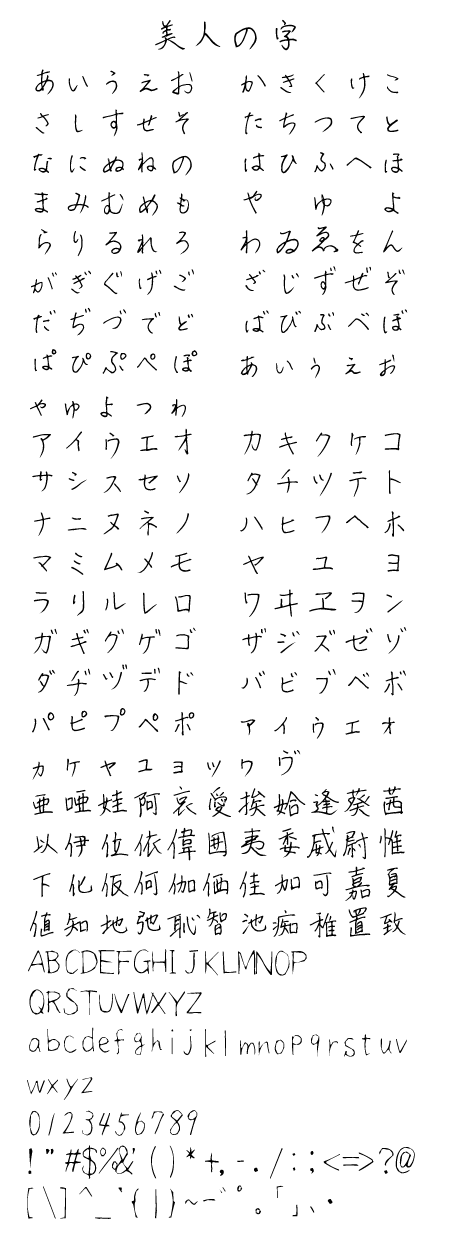 美人の字
あいうえお かきくけこ
さしすせそ たちつてと
なにぬねの はひふへほ
まみむめも や ゆ よ
らりるれろ わゐゑをん
がぎぐげご ざじずぜぞ
だぢづでど ばびぶべぼ
ぱぴぷぺぽ ぁぃぅぇぉ
ゃゅょっゎ
アイウエオ カキクケコ
サシスセソ タチツテト
ナニヌネノ ハヒフヘホ
マミムメモ ヤ ユ ヨ
ラリルレロ ワヰヱヲン
ガギグゲゴ ザジズゼゾ
ダヂヅデド バビブベボ
パピプペポ ァィゥェォ
ヵヶャュョッヮヴ
亜唖娃阿哀愛挨姶逢葵茜
以伊位依偉囲夷委威尉惟
下化仮何伽価佳加可嘉夏
値知地弛恥智池痴稚置致
ABCDEFGHIJKLMNOP
QRSTUVWXYZ
abcdefghijklmnopqrstuv
wxyz
0123456789
!"#$%&'()*+,-./:;<=>?@
[\]^_`{|}~ー゛゜。「」、・